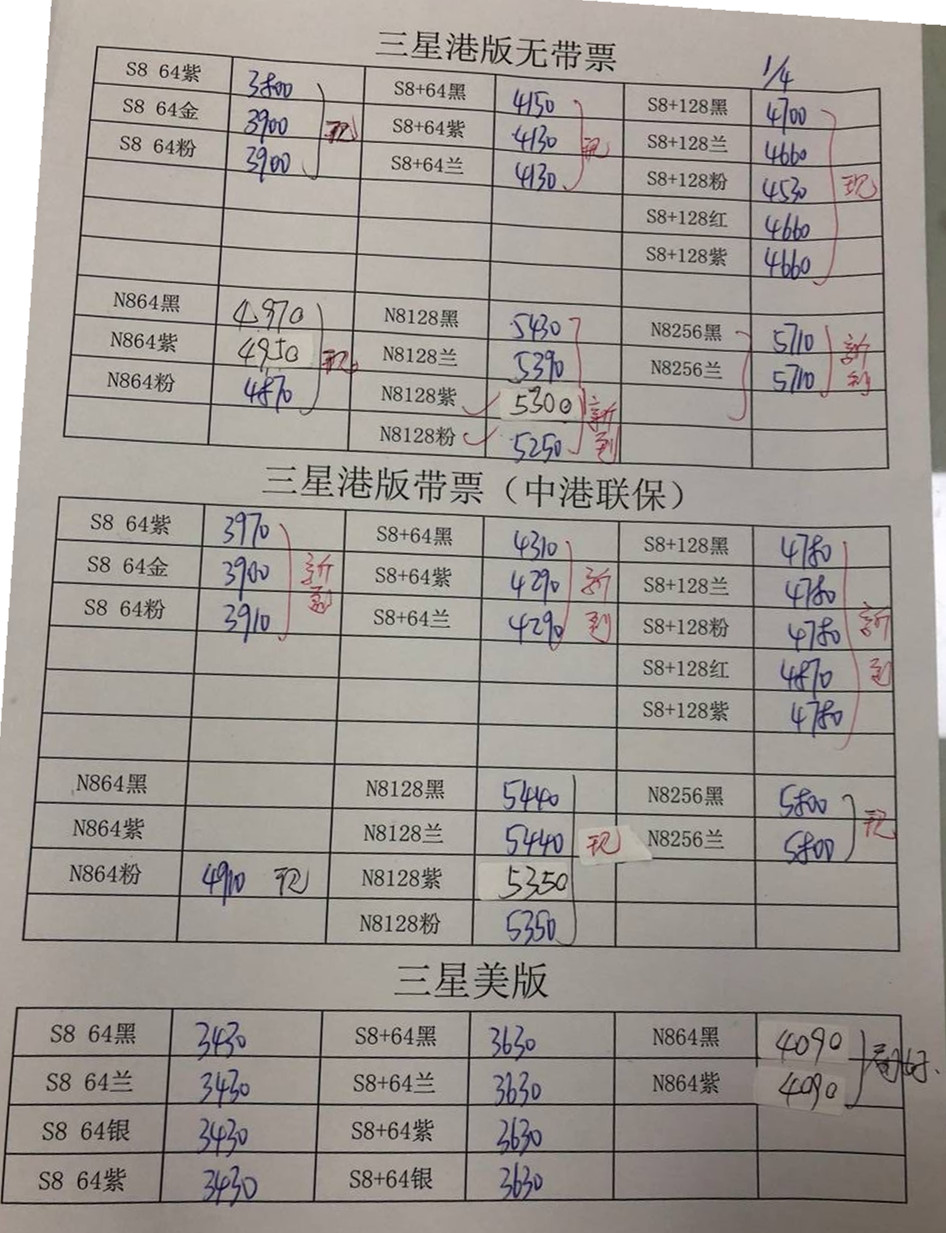 三星港版无带票
1/4
S8 64紫 3800 S8+64黑 4150 S8+128黑 4700
S8 64金 3900 现 S8+64紫 4130 现 S8+128兰 4660
S8 64粉 3900 S8+64兰 4130 S8+128粉 4530 现
S8+128红 4660
S8+128紫 4660
N864黑 4970 N8128黑 5430 N8256黑 5710 新到
N864紫 4950 现 N8128兰 5390 N8256兰 5710
N864粉 4870 N8128紫 5300 新到
N8128粉 5250
三星港版带票（中港联保）
S8 64紫 3970 S8+64黑 4310 S8+128黑 4780
S8 64金 3900 新到 S8+64紫 4290 新到 S8+128兰 4780
S8 64粉 3910 S8+64兰 4290 S8+128粉 4780 新到
S8+128红 4870
S8+128紫 4780
N864黑 N8128黑 5440 N8256黑 5800 现
N864紫 N8128兰 5440 现 N8256兰 5800
N864粉 4910 现 N8128紫 5350
N8128粉 5350
三星美版
S8 64黑 3430 S8+64黑 3630 N864黑 4090
S8 64兰 3430 S8+64兰 3630 N864紫 4090
S8 64银 3430 S8+64紫 3630
S8 64紫 3430 S8+64银 3630